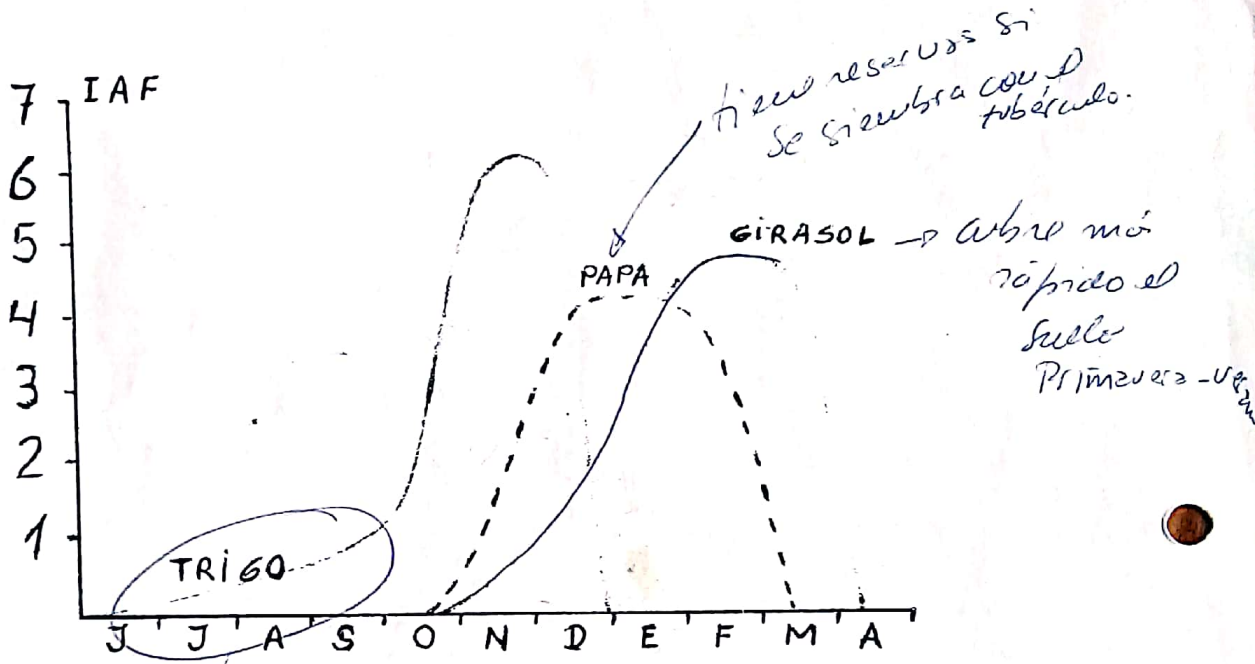 IAF
7
6
5
4
3
2
1
tiene reservas si
se siembra con el
tubérculo.
PAPA
GiRASOL → cubre más
rápido el
suelo
Primavera-
TRiGO
J J A S O N D E F M A